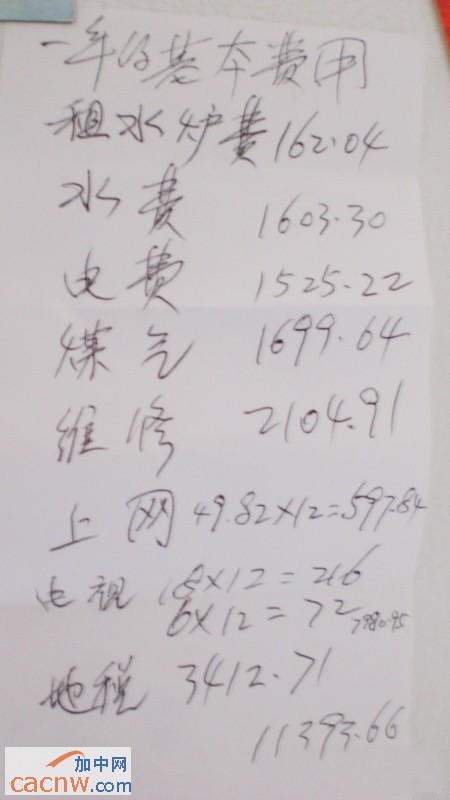 一年的基本费用
租水炉费 162.04
水费 1603.30
电费 1525.22
煤气 1699.64
维修 2104.91
上网 49.82×12=597.84
电视 18×12=216
6×12=72 7980.95
地税 3412.71
11393.66
加中网
cacnw.com